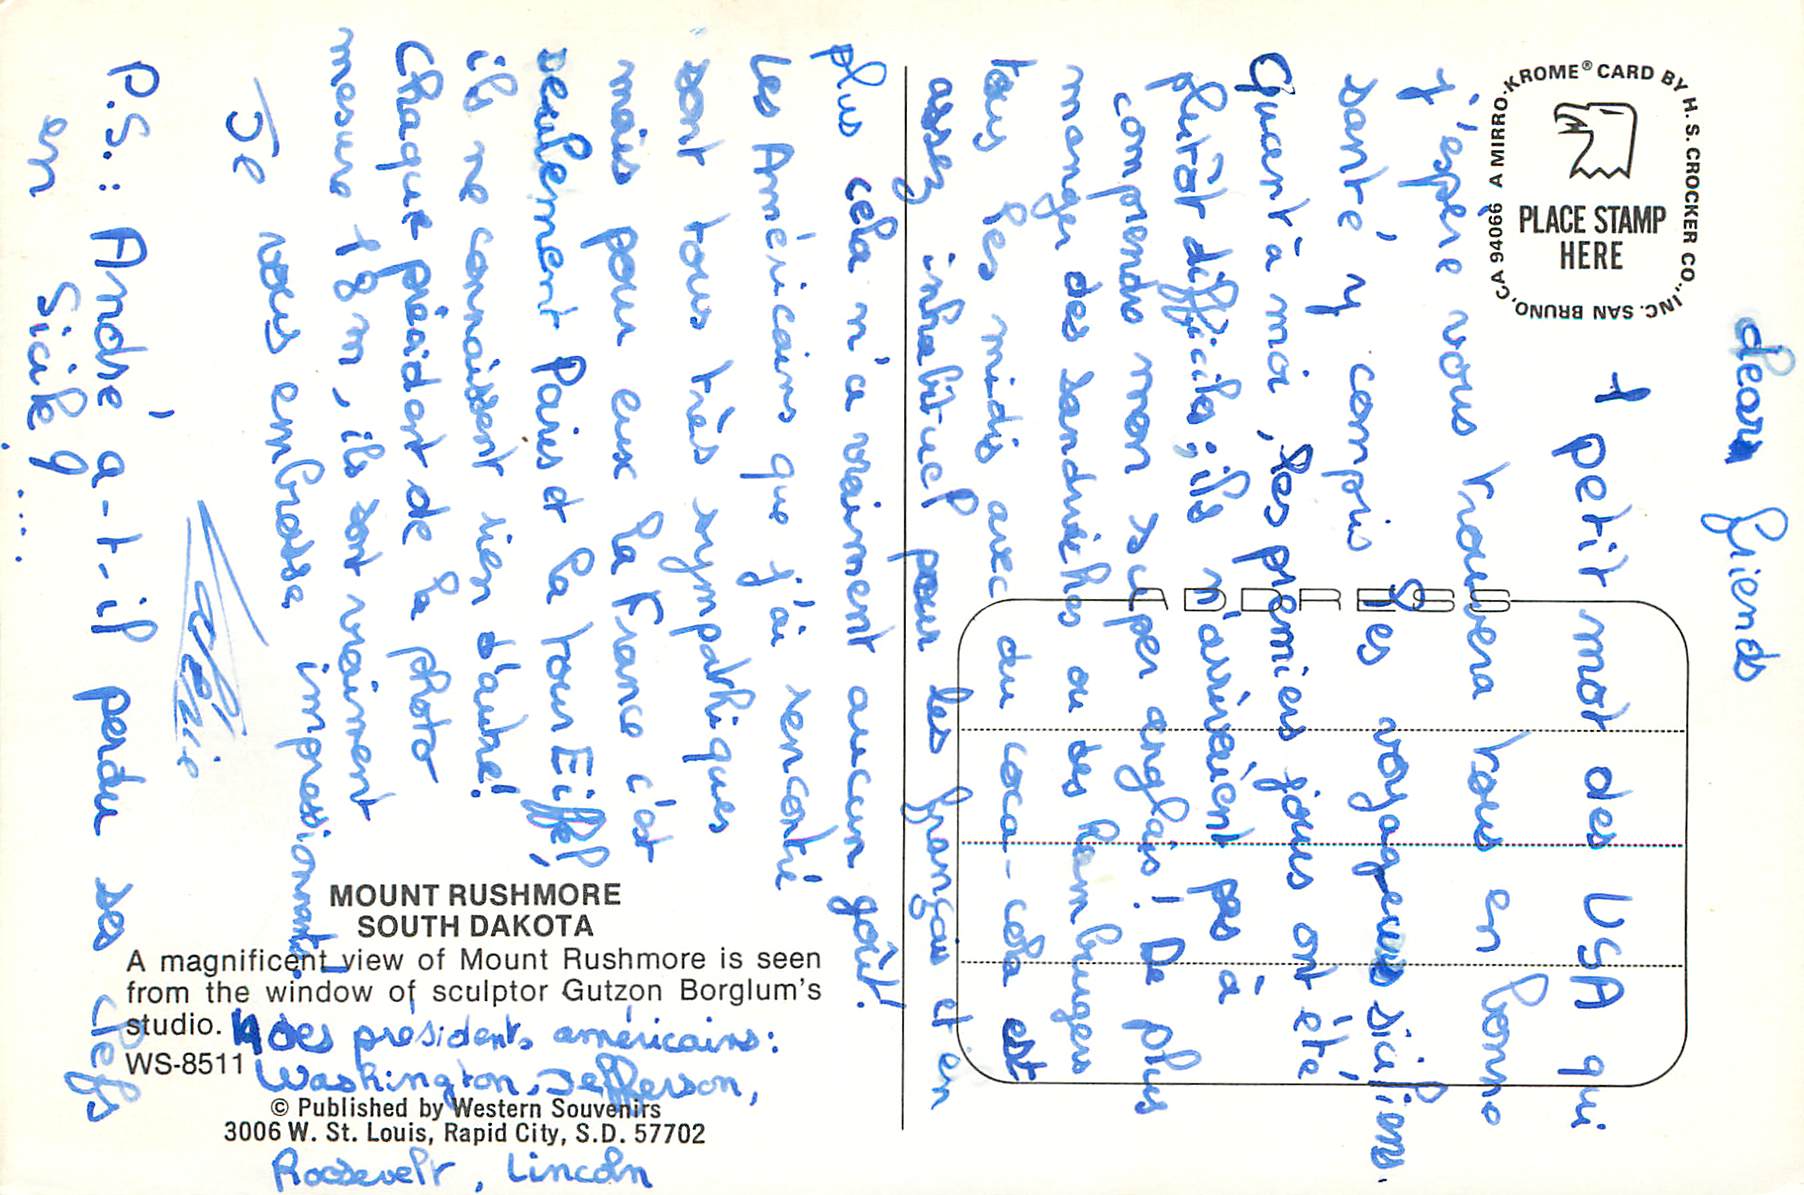 dear friends
1 petit mot des USA qui
j'espère vous trouvera tous en bonne
santé, y compris les voyageurs siciliens.
Quant à moi, les premiers jours ont été
plutôt difficiles; ils n'arrivaient pas à
comprendre mon super anglais! De plus
manger des sandwiches ou des hamburgers
tous les midis avec du coca-cola est
assez inhabituel pour les français et en
plus cela n'a vraiment aucun goût!
Les Américains que j'ai rencontré
sont tous très sympathiques
mais pour eux la France c'est
seulement Paris et la tour Eiffel,
ils ne connaissent rien d'autre!
Chaque président de la photo
mesure 18 m, ils sont vraiment
impressionnants.
Je vous embrasse
P.S.: André a-t-il perdu ses clefs
en Sicile?....
PLACE STAMP
HERE
A MIRRO-KROME® CARD BY H. S. CROCKER CO., INC. SAN BRUNO, CA 94066
ADDRESS
MOUNT RUSHMORE
SOUTH DAKOTA
A magnificent view of Mount Rushmore is seen
from the window of sculptor Gutzon Borglum's
studio.
WS-8511
4 des présidents américains:
Washington, Jefferson,
Roosevelt, Lincoln
© Published by Western Souvenirs
3006 W. St. Louis, Rapid City, S.D. 57702